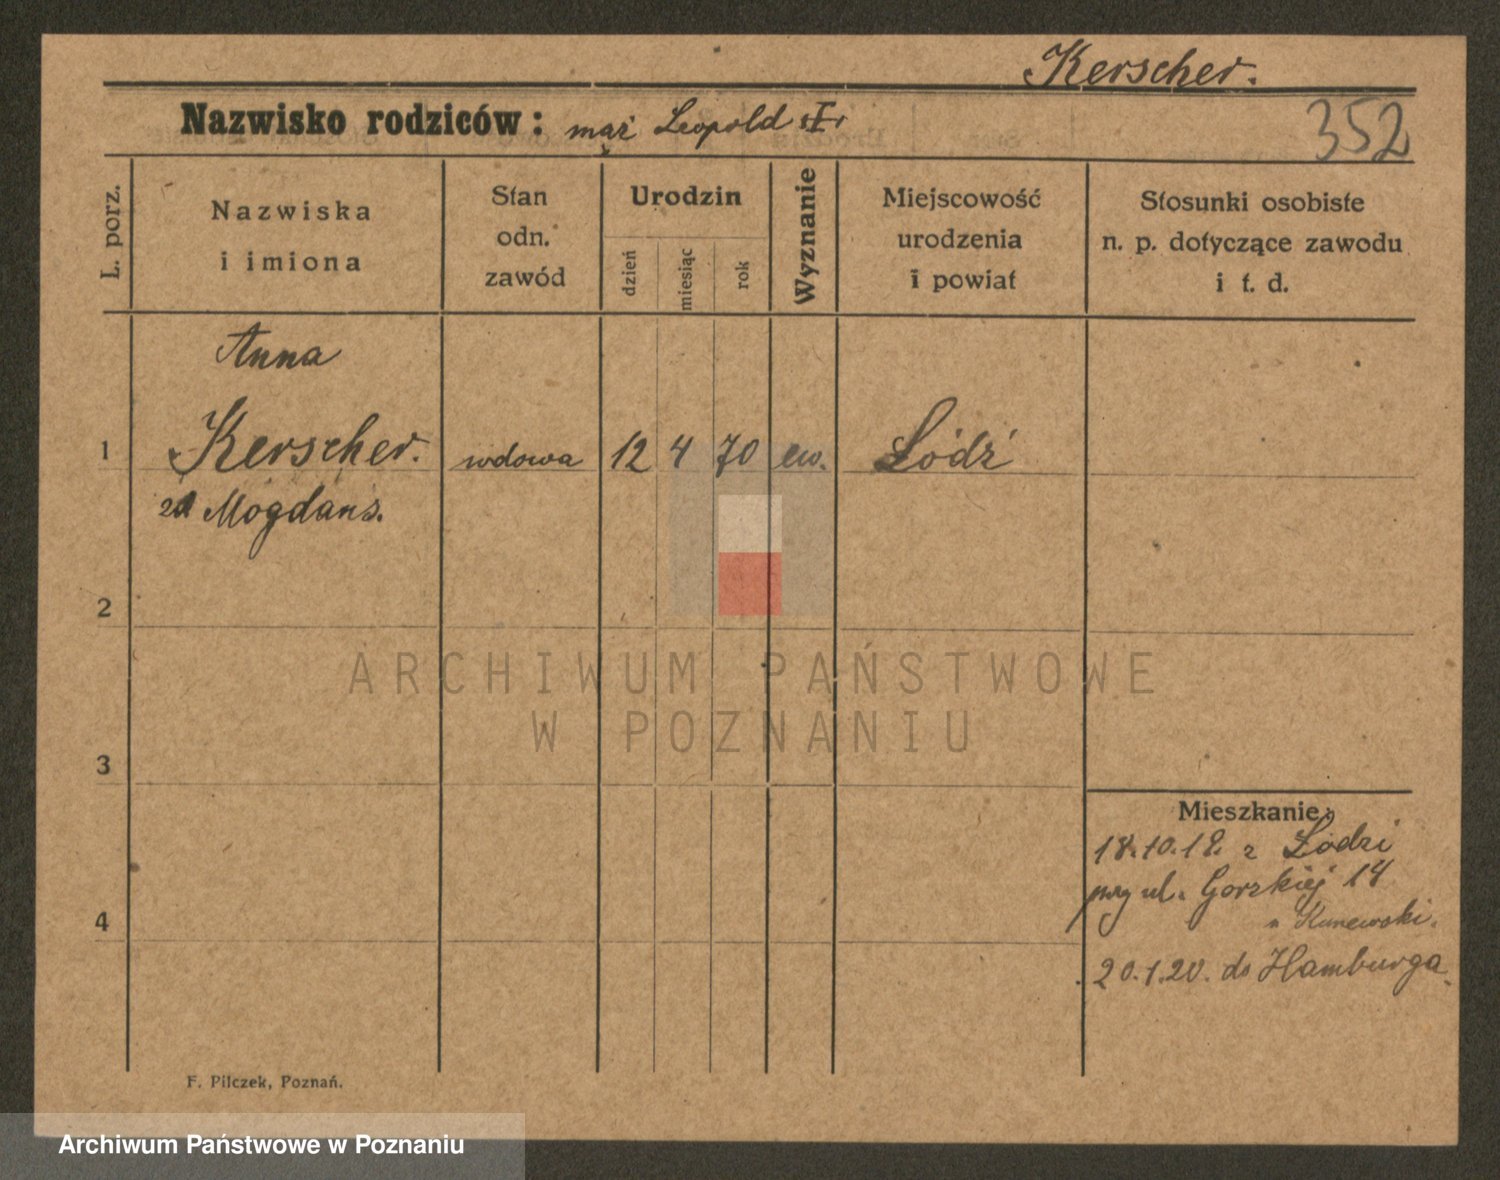 Kerscher.
Nazwisko rodziców: mąż Leopold
352
L. porz.
Nazwiska
i imiona
Stan
odn.
zawód
Urodzin
dzień
miesiąc
rok
Wyznanie
Miejscowość
urodzenia
i powiat
Stosunki osobiste
n. p. dotyczące zawodu
i t. d.
Anna
1 Kerscher. wdowa 12 4 70 ew. Łódź
Mogdans.
2
ARCHIWUM PAŃSTWOWE
W POZNANIU
3
Mieszkanie:
18.10.18. z Łodzi
ul. Gorzkiej 14
Kunewski.
4
20.1.20. do Hamburga
F. Pilczek, Poznań.
Archiwum Państwowe w Poznaniu